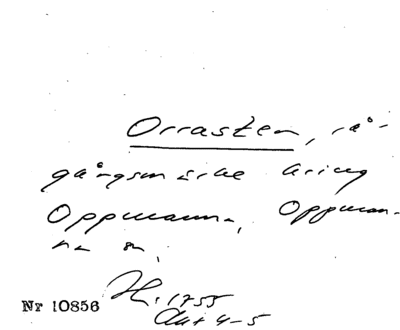 Orrasten, rå-
gångsmärke kring
Oppmanna, Oppman-
na sn,
H. 1755
Akt 4-5
Nr 10856